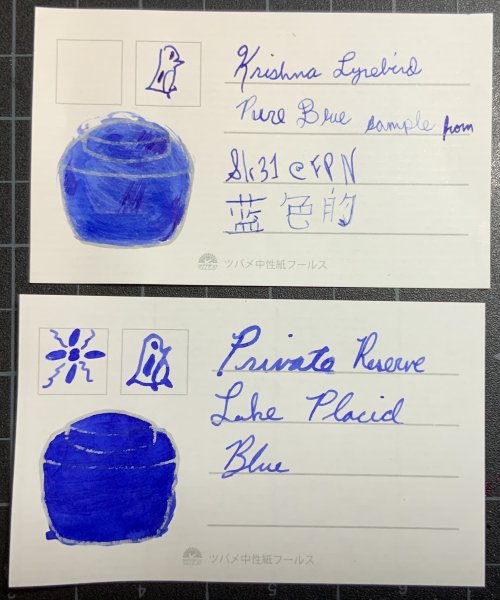 Krishna Lyrebird
Pure Blue sample from
Sk31 @ FPN
蓝色的
ツバメ中性紙フールス
Private Reserve
Lake Placid
Blue
ツバメ中性紙フールス